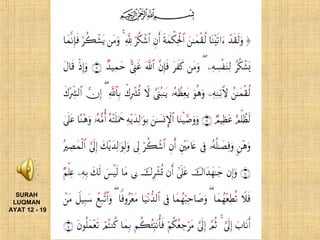 بِسْمِ ٱللَّهِ ٱلرَّحْمَٰنِ ٱلرَّحِيمِ
وَلَقَدْ ءَاتَيْنَا لُقْمَٰنَ ٱلْحِكْمَةَ أَنِ ٱشْكُرْ لِلَّهِ ۚ وَمَن يَشْكُرْ فَإِنَّمَا
يَشْكُرُ لِنَفْسِهِۦ ۖ وَمَن كَفَرَ فَإِنَّ ٱللَّهَ غَنِىٌّ حَمِيدٌ ۝ وَإِذْ قَالَ
لُقْمَٰنُ لِٱبْنِهِۦ وَهُوَ يَعِظُهُۥ يَٰبُنَىَّ لَا تُشْرِكْ بِٱللَّهِ ۖ إِنَّ ٱلشِّرْكَ
لَظُلْمٌ عَظِيمٌ ۝ وَوَصَّيْنَا ٱلْإِنسَٰنَ بِوَٰلِدَيْهِ حَمَلَتْهُ أُمُّهُۥ وَهْنًا عَلَىٰ
وَهْنٍ وَفِصَٰلُهُۥ فِى عَامَيْنِ أَنِ ٱشْكُرْ لِى وَلِوَٰلِدَيْكَ إِلَىَّ ٱلْمَصِيرُ
۝ وَإِن جَٰهَدَاكَ عَلَىٰٓ أَن تُشْرِكَ بِى مَا لَيْسَ لَكَ بِهِۦ عِلْمٌ
فَلَا تُطِعْهُمَا ۖ وَصَاحِبْهُمَا فِى ٱلدُّنْيَا مَعْرُوفًا ۖ وَٱتَّبِعْ سَبِيلَ مَنْ
أَنَابَ إِلَىَّ ۚ ثُمَّ إِلَىَّ مَرْجِعُكُمْ فَأُنَبِّئُكُم بِمَا كُنتُمْ تَعْمَلُونَ ۝
SURAH
LUQMAN
AYAT 12 - 19